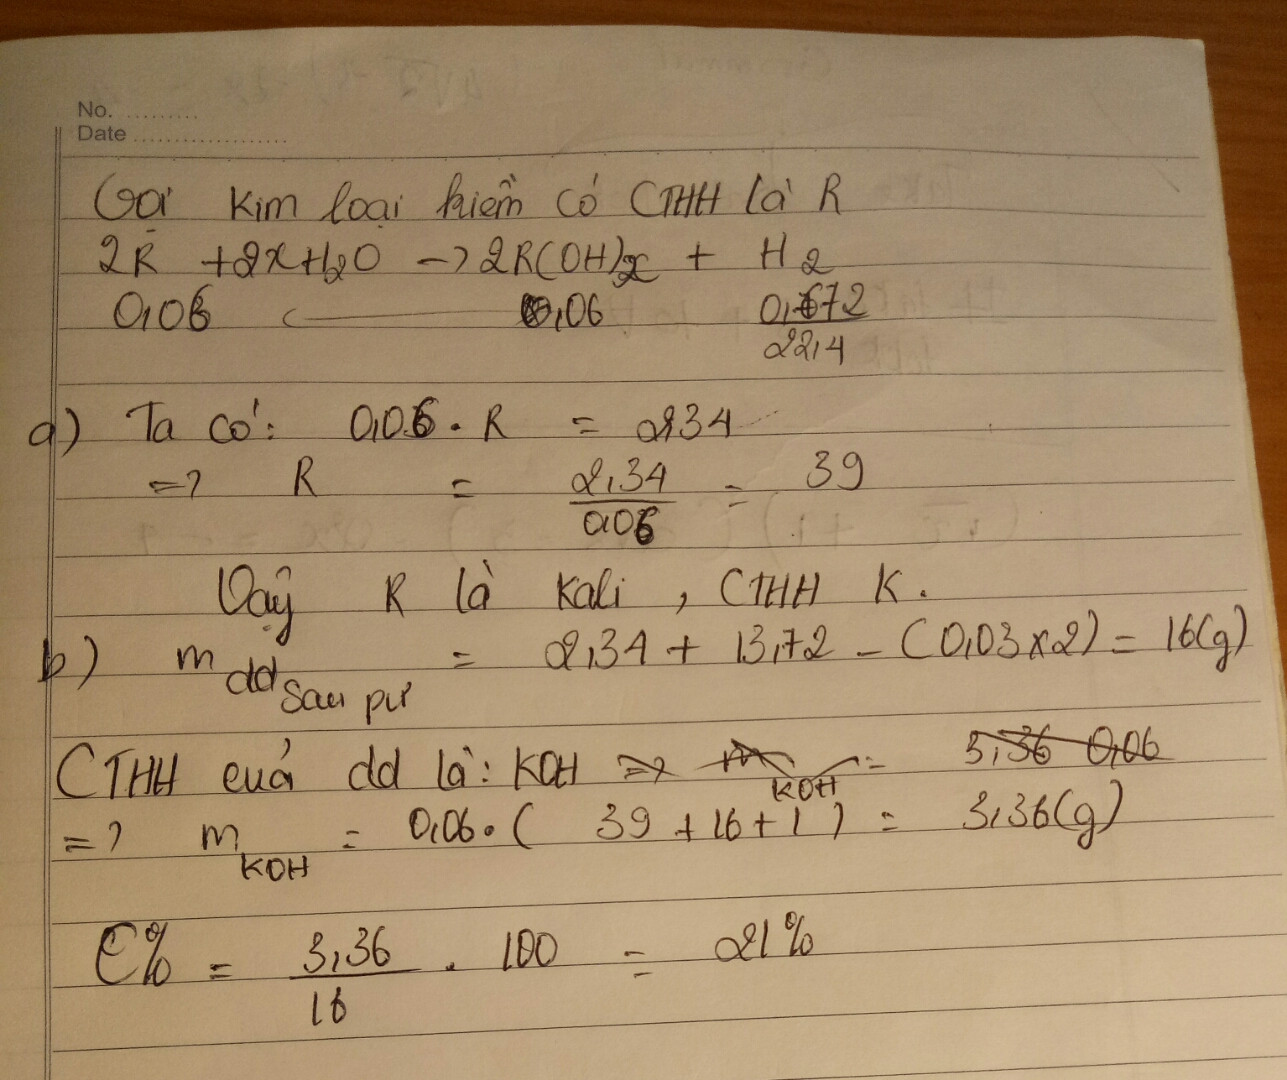 No. .........
Date ...................
Gọi kim loại kiềm có CTHH là R
2R + 2xH2O -> 2R(OH)x + H2
0,06 <- 0,06 0,672/22,4
a) Ta có: 0,06 . R = 2,34
=> R = 2,34/0,06 = 39
Vậy R là Kali, CTHH K.
b) m dd sau pư = 2,34 + 13,72 - (0,03x2) = 16(g)
CTHH của dd là: KOH => m KOH = 3,36 0,06
=> m KOH = 0,06.(39+16+1) = 3,36(g)
C% = 3,36/16 . 100 = 21%